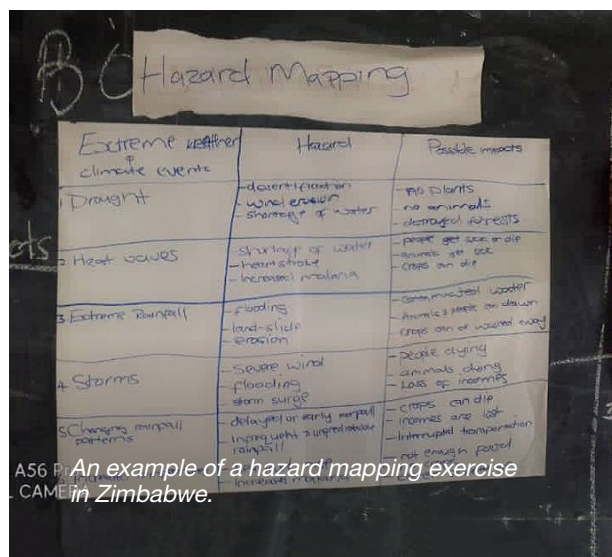 Hazard Mapping
Extreme weather
&
climate events
Hazard
Possible impacts
1 Drought
- desertification
- wind erosion
- shortage of water
- no plants
- no animals
- destroyed forests
2 Heat waves
- shortage of water
- heartstroke
- Increased malaria
- people get sick or die
- animals get sick
- crops can die
3 Extreme Rainfall
- flooding
- land-slide
- erosion
- Contaminated water
- Animals & people can drown
- crops can be washed away
4 Storms
- Severe wind
- flooding
- storm surge
- people dying
- animals dying
- Loss of incomes
5 Changing rainfall
patterns
- delayed or early rainfall
- Infrequent &
rainfall
- crops can die
- incomes are lost
- Interrupted transportation
- not enough
- Increased
A56
CAME
An example of a hazard mapping exercise
in Zimbabwe.